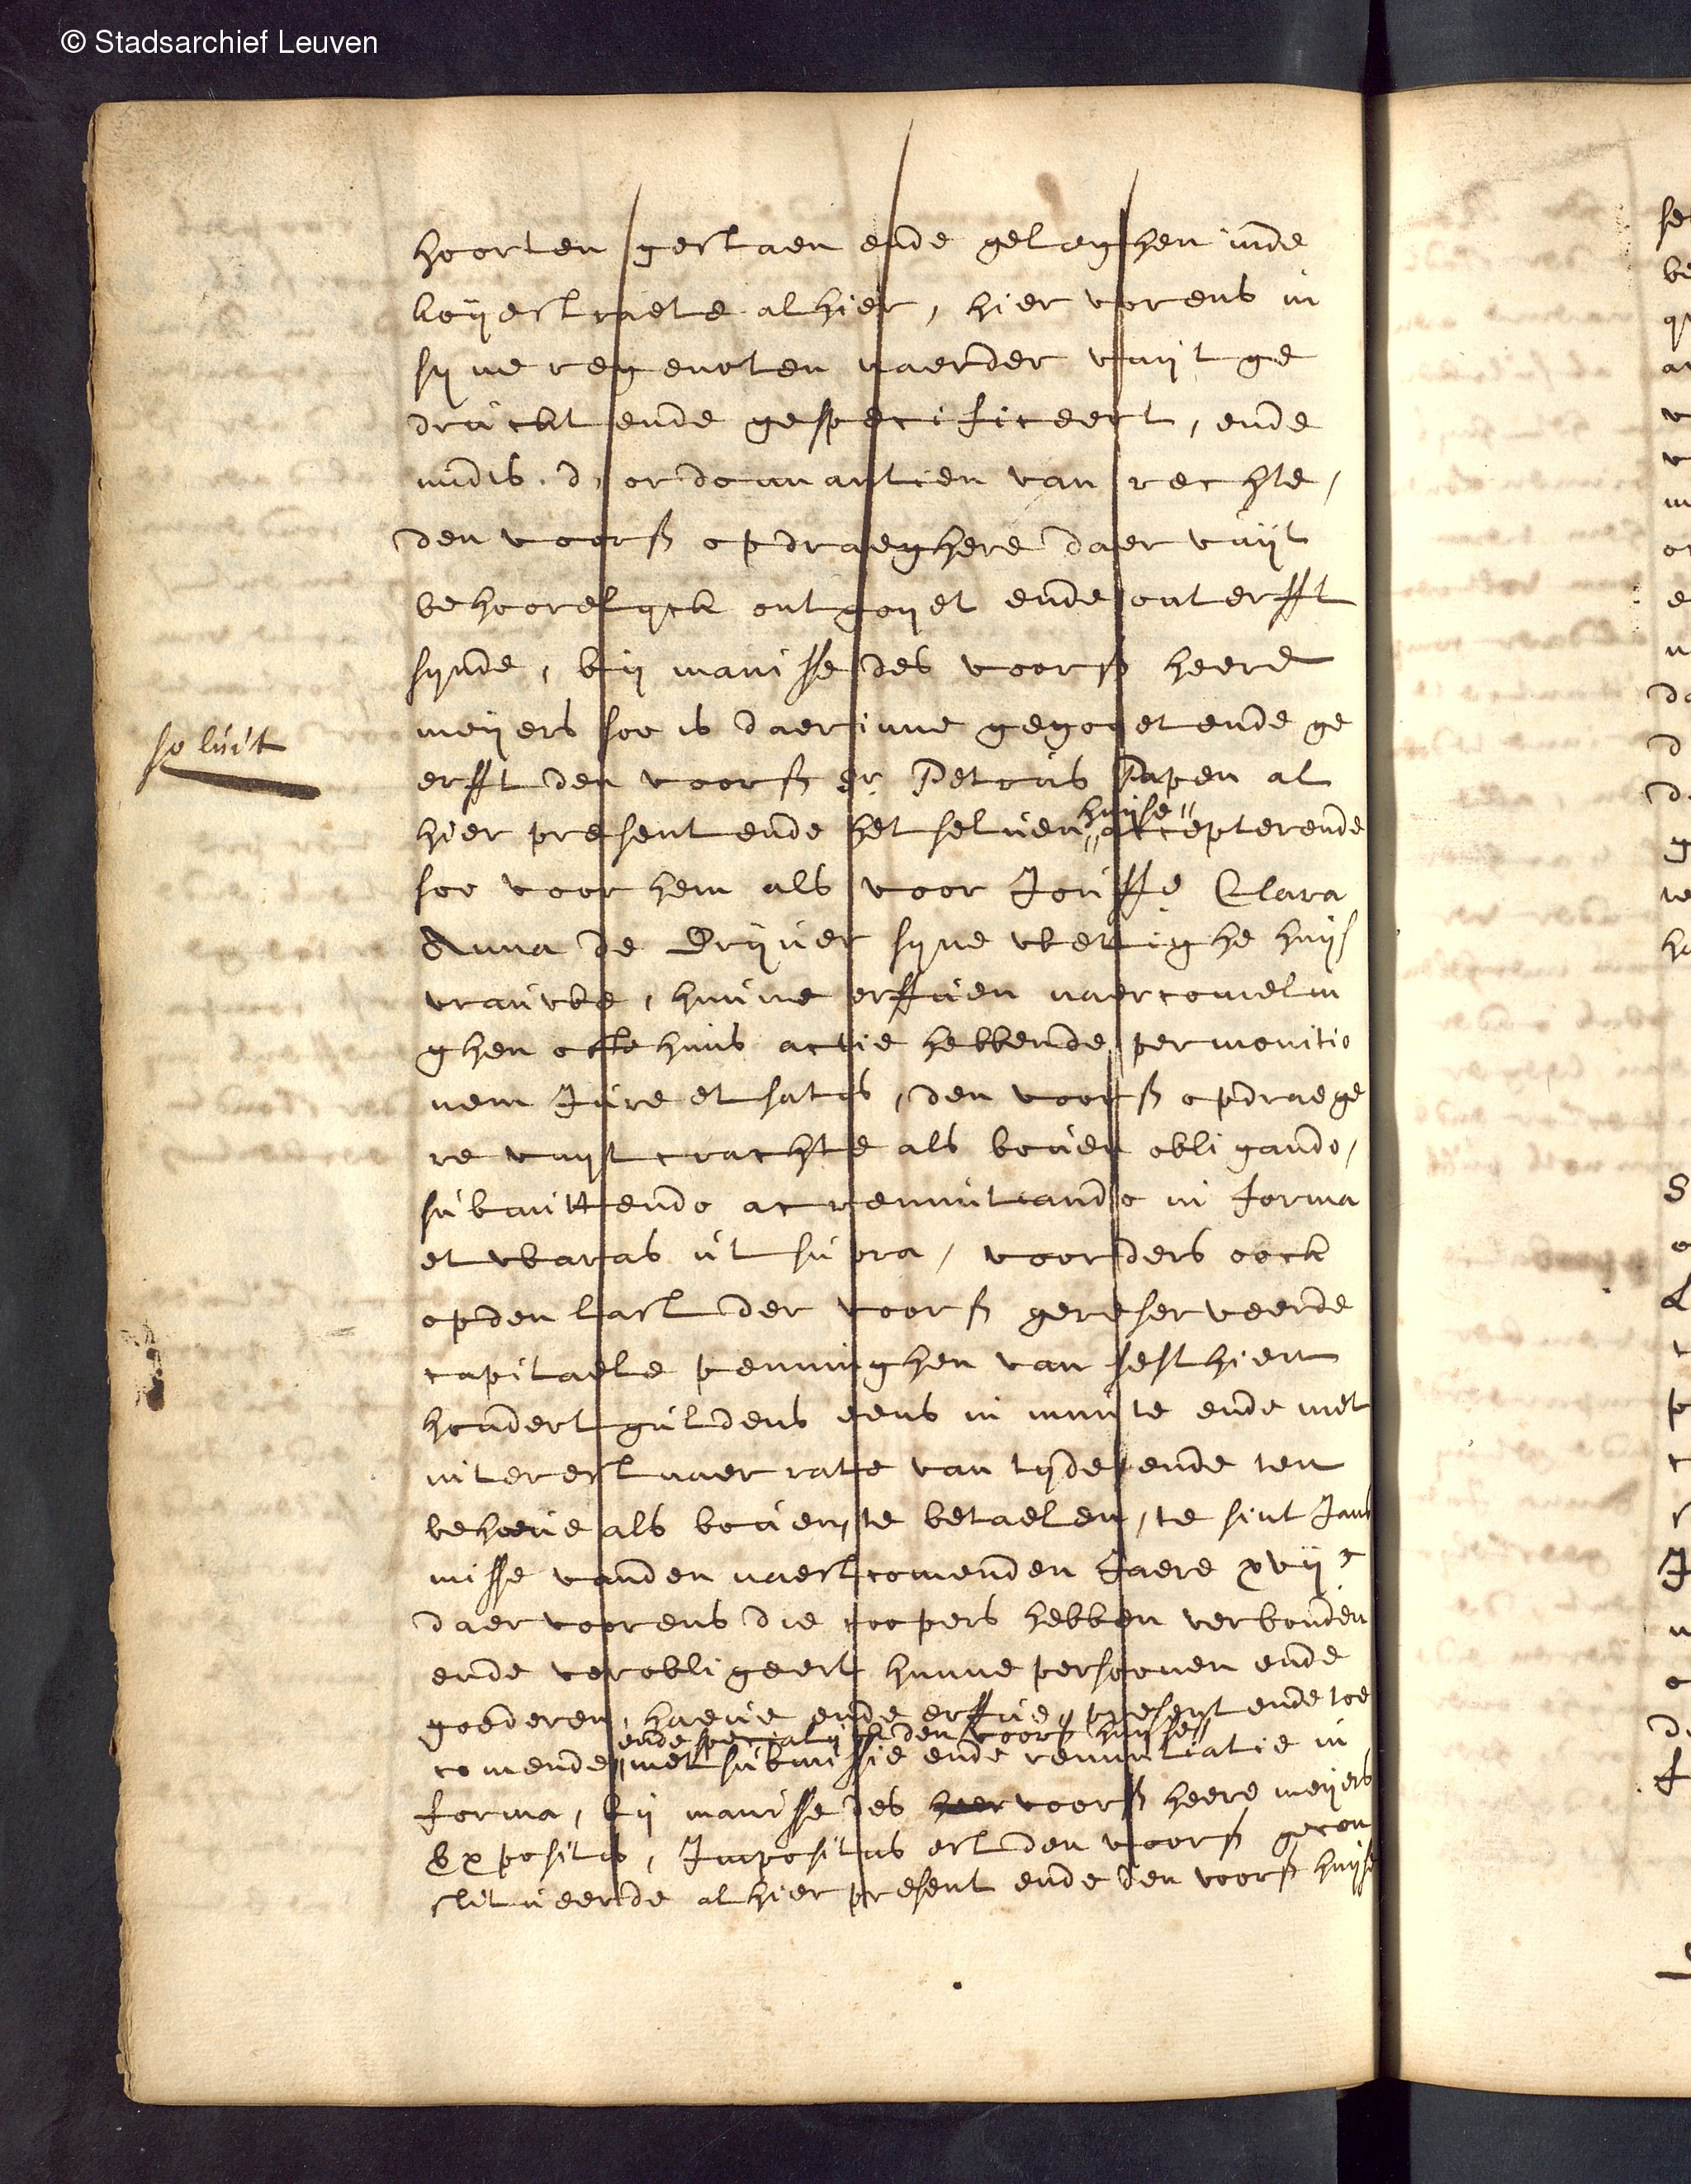 © Stadsarchief Leuven
hoorten gestaen ende geleghen inde
koyestraete alhier, hier vorens in
syne regenoten naerder vuyt ge
druckt ende gespecificeert, ende
midts d'ordonnantien van rechte,
den voors opdraeghere daer vuyt
behoorelyck ontgoyet ende onterfft
synde, by manisse des voors heere
meyers soo is daerinne gegoyet ende ge
solvit
erfft den voors Sr Petrus Papen al
hier present ende het selven huyse accepterende
soo voor hem als voor Jouffe Clara
Anna de Dryver syne wettighe huys
vrauwe, hunne erffven naercomelin
ghen ofte huns actie hebbende per monitio
nem Jure et satis, den voors opdraege
re vuyt crachte als boven obligando,
submittendo ac renuntiando in forma
et waras ut supra, voorders oock
opden last der voors gereserveerde
capitaele penninghen van sesthien
hondert guldens eens in munte ende met
interest naer rate van tyde ende ten
behoeve als boven te betaelen, te sint Jans
misse vanden naestcomenden Jaere xvijc
daer voorens die coopers hebben verbonden
ende verobligeert hunne persoonen ende
goederen, haeve ende erffve, present ende toe
ende specialyck den voors huyse
comende met submissie ende renuntiatie in
forma, by manisse des voors heere meyers
Expositis, Impositus est den voors gecon
stitueerde alhier present ende den voors huyse